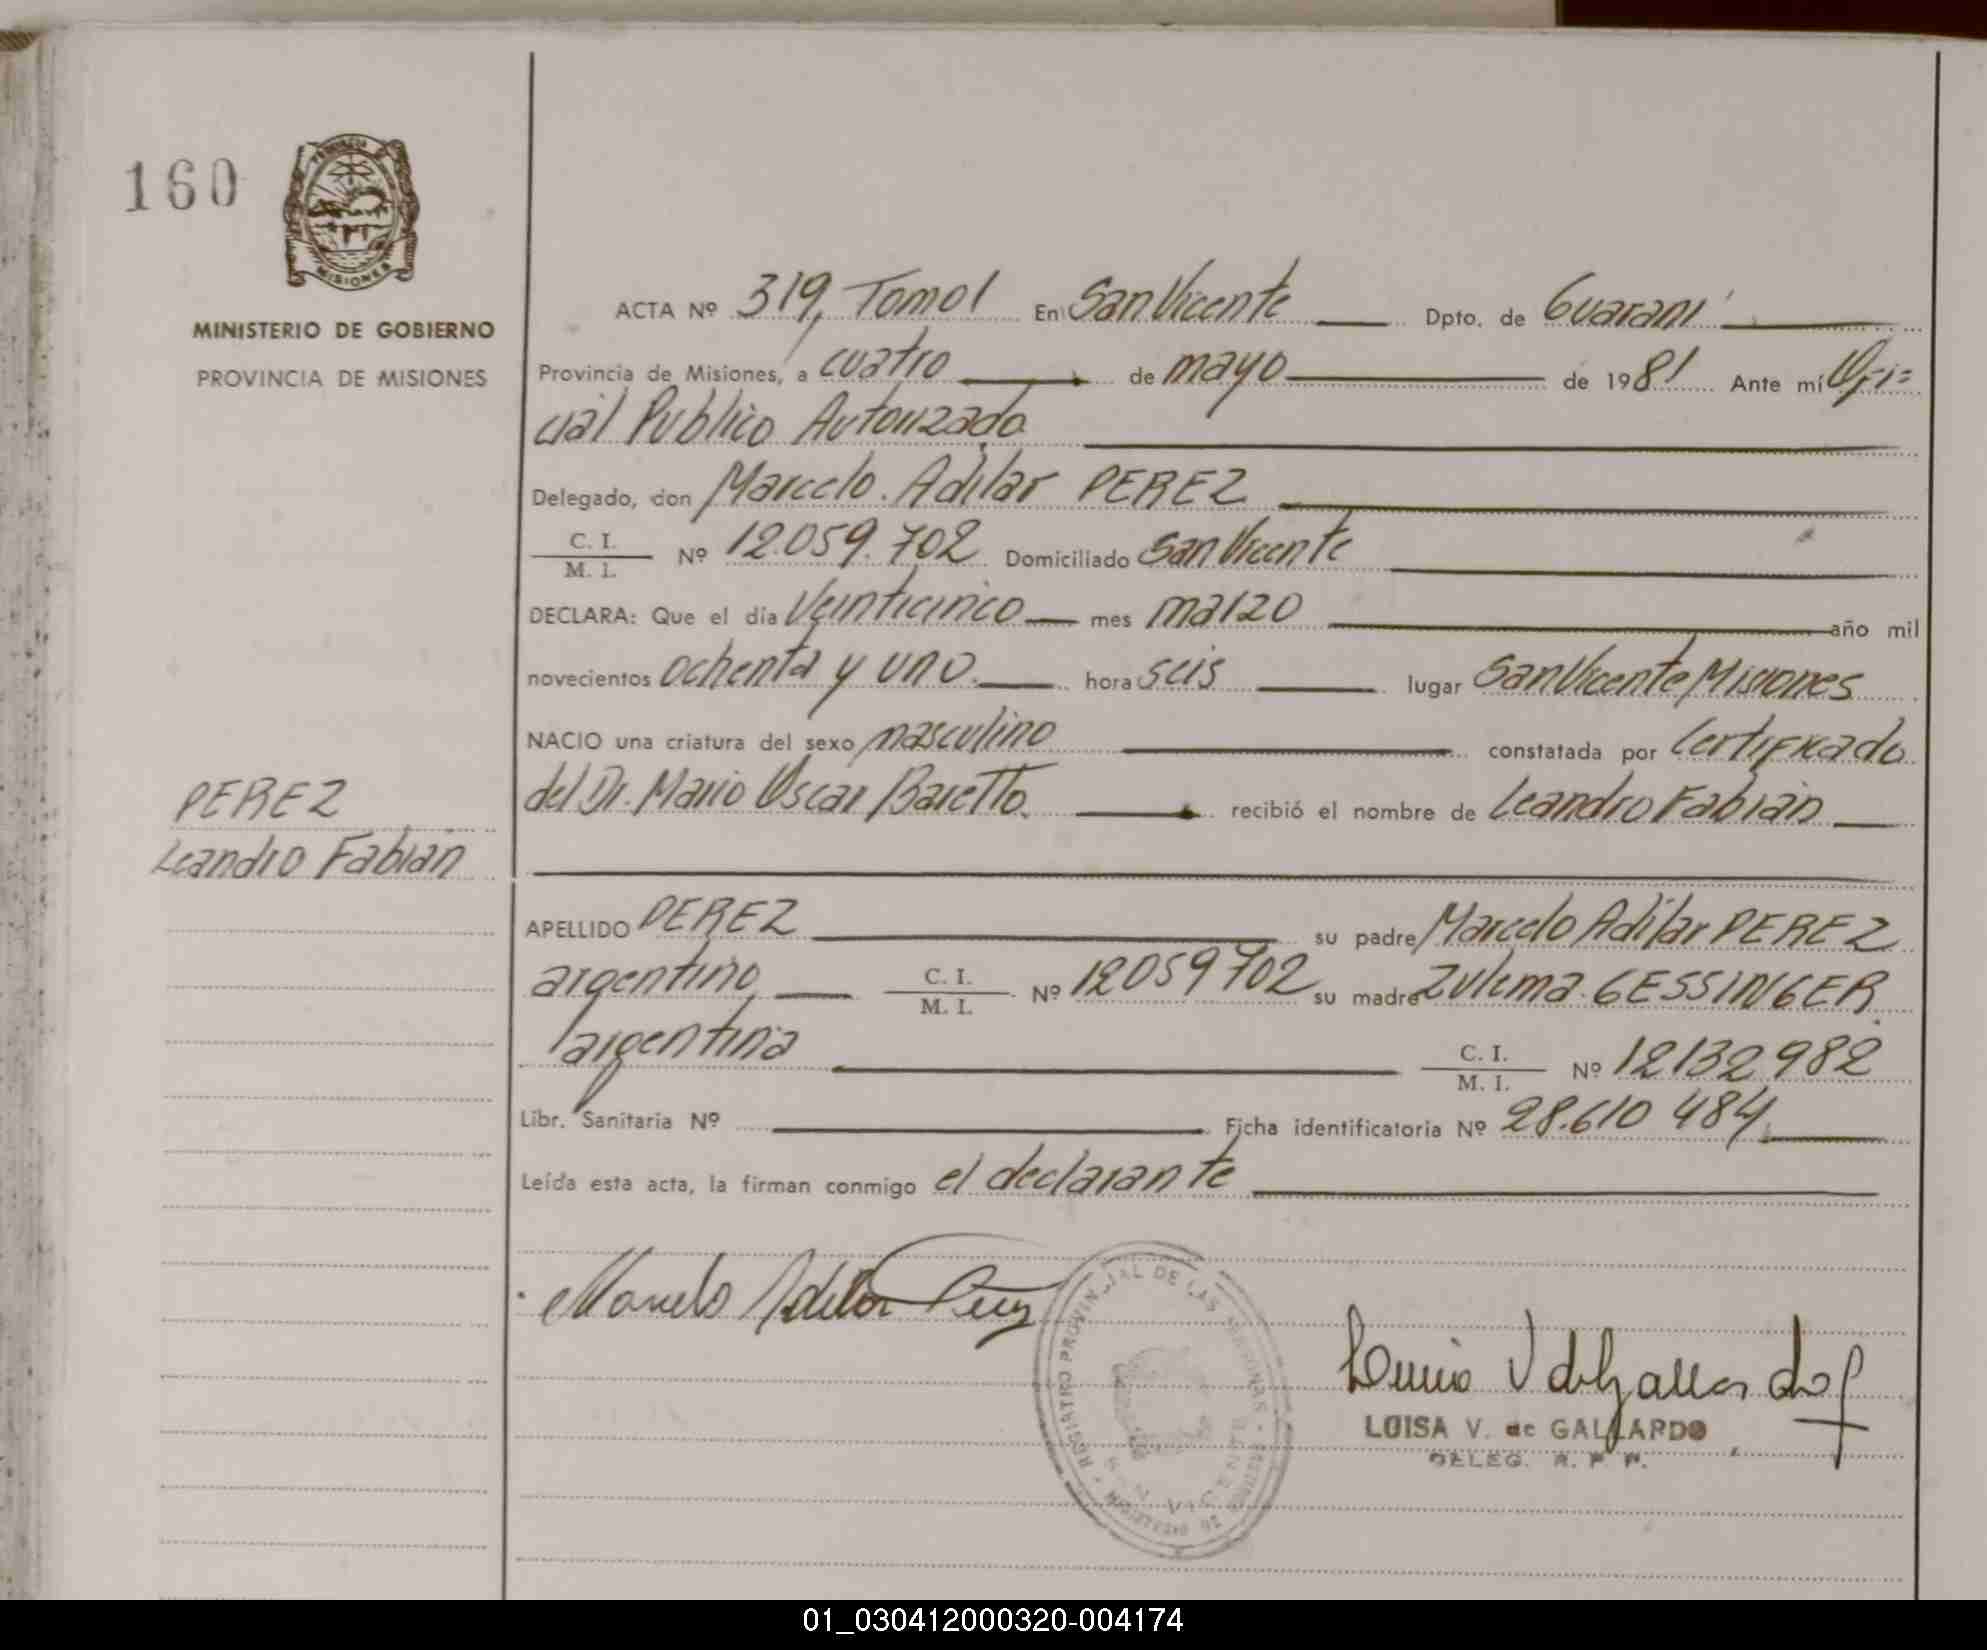 160
PROVINCIA DE
MISIONES
MINISTERIO DE GOBIERNO
PROVINCIA DE MISIONES
ACTA Nº 319, Tomo I En San Vicente Dpto. de Guaraní
Provincia de Misiones, a cuatro de mayo de 1981 Ante mí Ofi=
cial Público Autorizado
Delegado, don Marcelo Adilar PEREZ
C. I.
M. I. Nº 12.059.702 Domiciliado San Vicente
DECLARA: Que el día Veinticinco mes marzo año mil
novecientos ochenta y uno hora seis lugar San Vicente Misiones
NACIO una criatura del sexo masculino constatada por Certificado
del Dr. Mario Oscar Baretto. recibió el nombre de Leandro Fabian
PEREZ
Leandro Fabian
APELLIDO PEREZ su padre Marcelo Adilar PEREZ
argentino C. I.
M. I. Nº 12059702 su madre Zulema GESSINGER
argentina C. I.
M. I. Nº 12132982
Libr. Sanitaria Nº Ficha identificatoria Nº 28.610 484
Leída esta acta, la firman conmigo el declarante
Marcelo Adilar Perez
REGISTRO PROVINCIAL DE LAS PERSONAS
LUISA V. de GALLARDO
DELEG. R. P. P.
01_030412000320-004174